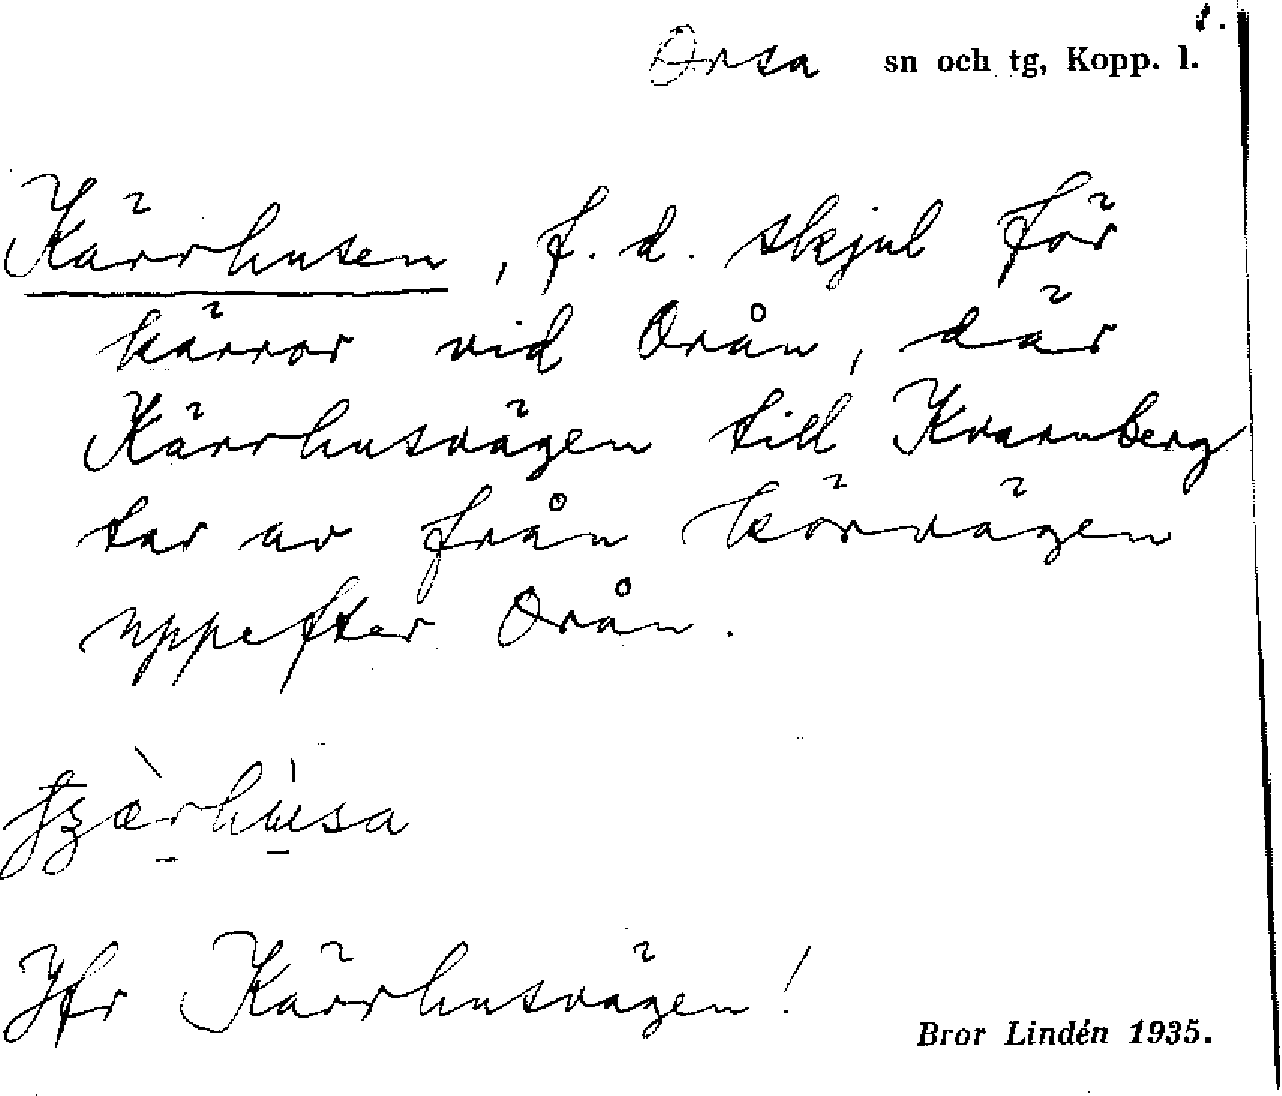 Orsa sn och tg, Kopp. l.
Kärrhusen, f. d. skjul för
kärror vid Orån, där
Kärrhusvägen till Kvarnberg
tar av från körvägen
uppefter Orån.
Jfr Kärrhusvägen!
Bror Lindén 1935.